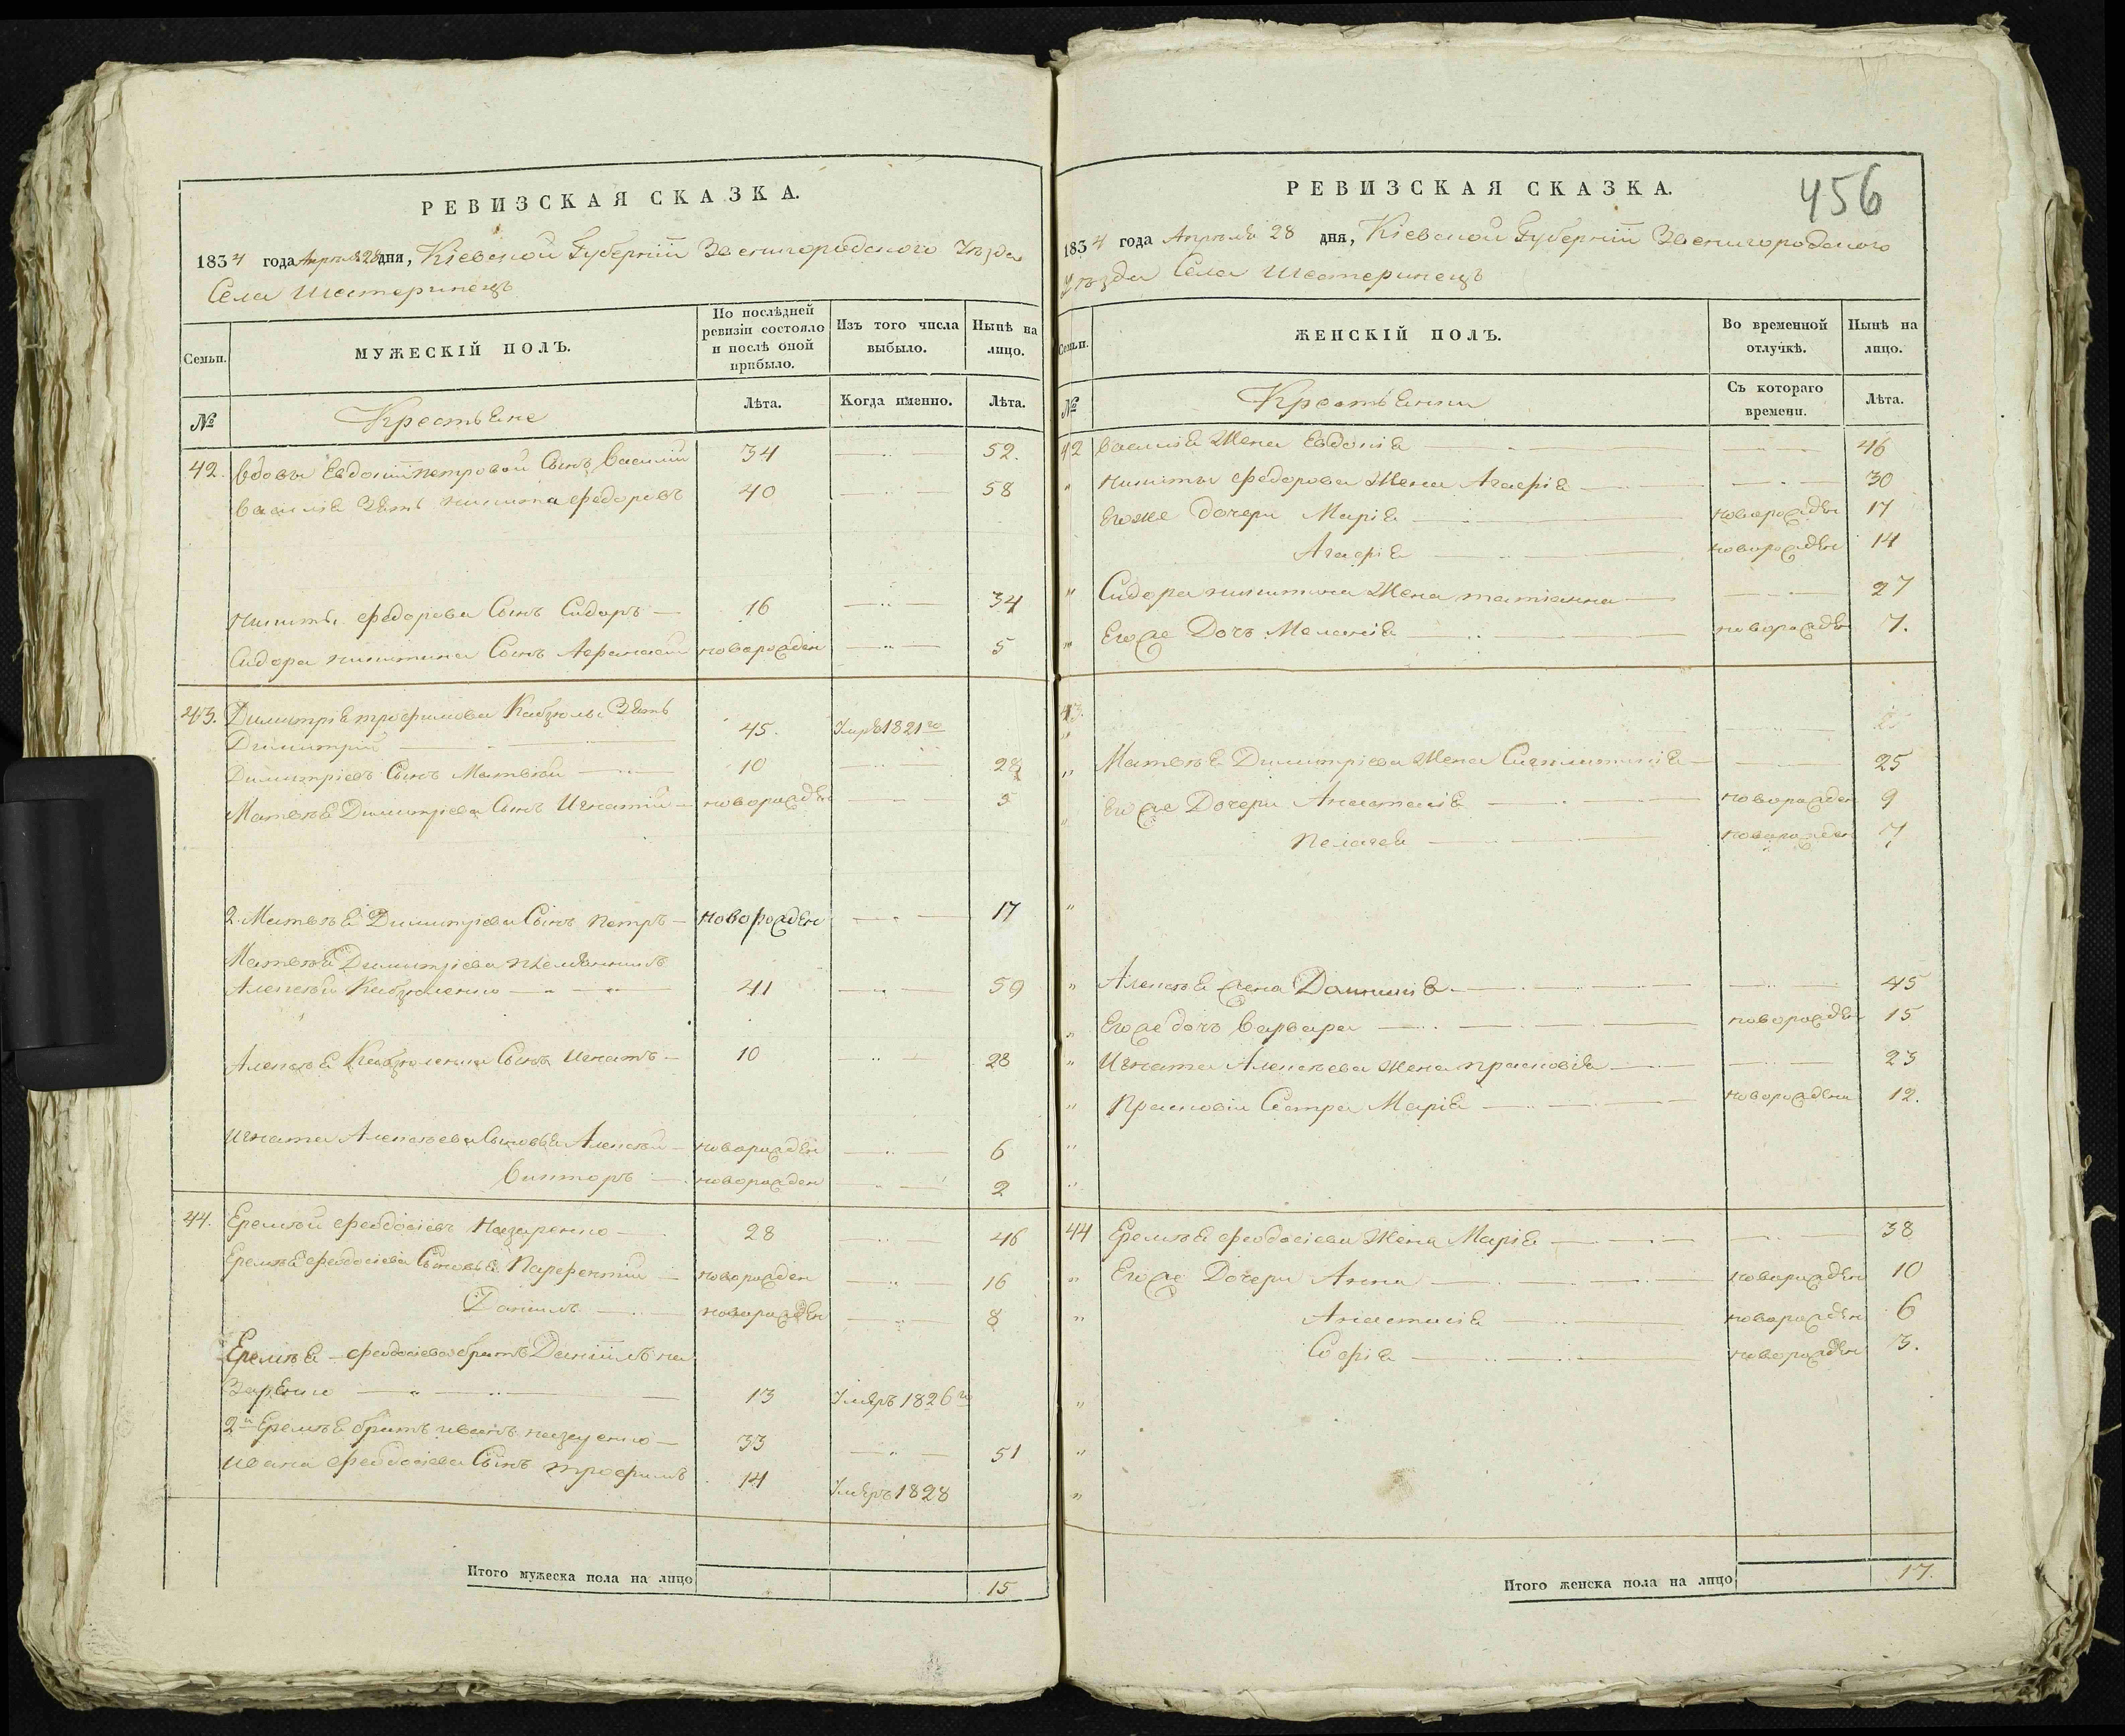 РЕВИЗСКАЯ СКАЗКА.
1834 года Апреля 28 дня, Кіевской Губерніи Звенигородского Уѣзда
Села Шестеринецъ
Семьи.
МУЖЕСКІЙ ПОЛЪ.
По послѣдней ревизіи состояло и послѣ оной прибыло.
Изъ того числа выбыло.
Нынѣ на лицо.
№
Крестьяне
Лѣта.
Когда именно.
Лѣта.
42. Вдовы Евдокіи Петровой Сынъ Василій 34 52.
Василія Зять Никита Федоровъ 40 58
Никиты Федорова Сынъ Сидоръ 16 34
Сидора Никитина Сынъ Афанасій новорожден 5
43. Димитрія Трофимова Кабзюлы Зять
Димитрій 45. Умре 1821го
Димитріевъ Сынъ Матвѣй 10 28
Матвѣя Димитріева Сынъ Игнатій новорожден 5
2. Матвѣя Димитріева Сынъ Петръ новорожден 17
Матвѣя Димитріева племянникъ
Алексѣй Кабзюленко 41 59
Алексѣя Кабзюленка Сынъ Игнатъ 10 28
Игната Алексѣева Сыновья Алексѣй новорожден 6
Викторъ новорожден 2
44. Еремѣй Феодосіевъ Назаренко 28 46
Еремѣя Феодосіева Сыновья Парфентій новорожден 16
Даніилъ новорожден 8
Еремѣя Феодосіева братъ Даніилъ На
заренко 13 Умеръ 1826го
2й Еремѣя братъ Иванъ Назаренко 33 51
Ивана Феодосіева Сынъ Трофимъ 14 Умеръ 1828
Итого мужеска пола на лицо 15
456
РЕВИЗСКАЯ СКАЗКА.
1834 года Апреля 28 дня, Кіевской Губерніи Звенигородского
Уѣзда Села Шестеринецъ
Семьи.
ЖЕНСКІЙ ПОЛЪ.
Во временной отлучкѣ.
Нынѣ на лицо.
№
Крестьянки
Съ котораго времени.
Лѣта.
42 Василія Жена Евдокія 46
Никиты Федорова Жена Агафія 30
Егоже дочери Марія новорожден 17
Агафія новорожден 14
Сидора Никитина Жена Татіанна 27
Егоже Дочь Меланія новорожден 7.
43.
Матвѣя Димитріева Жена 25
Егоже Дочери Анастасія новорожден 9
Пелагея новорожден 7
Алексѣя жена Домникія 45
Егоже дочь Варвара новорожден 15
Игната Алексѣева Жена Прасковія 23
Прасковіи Сестра Марія новорождена 12.
44 Еремѣя Феодосіева Жена Марія 38
Егоже Дочери Анна новорожден 10
Анастасія новорожден 6
Софія новорожден 3.
Итого женска пола на лицо 17.